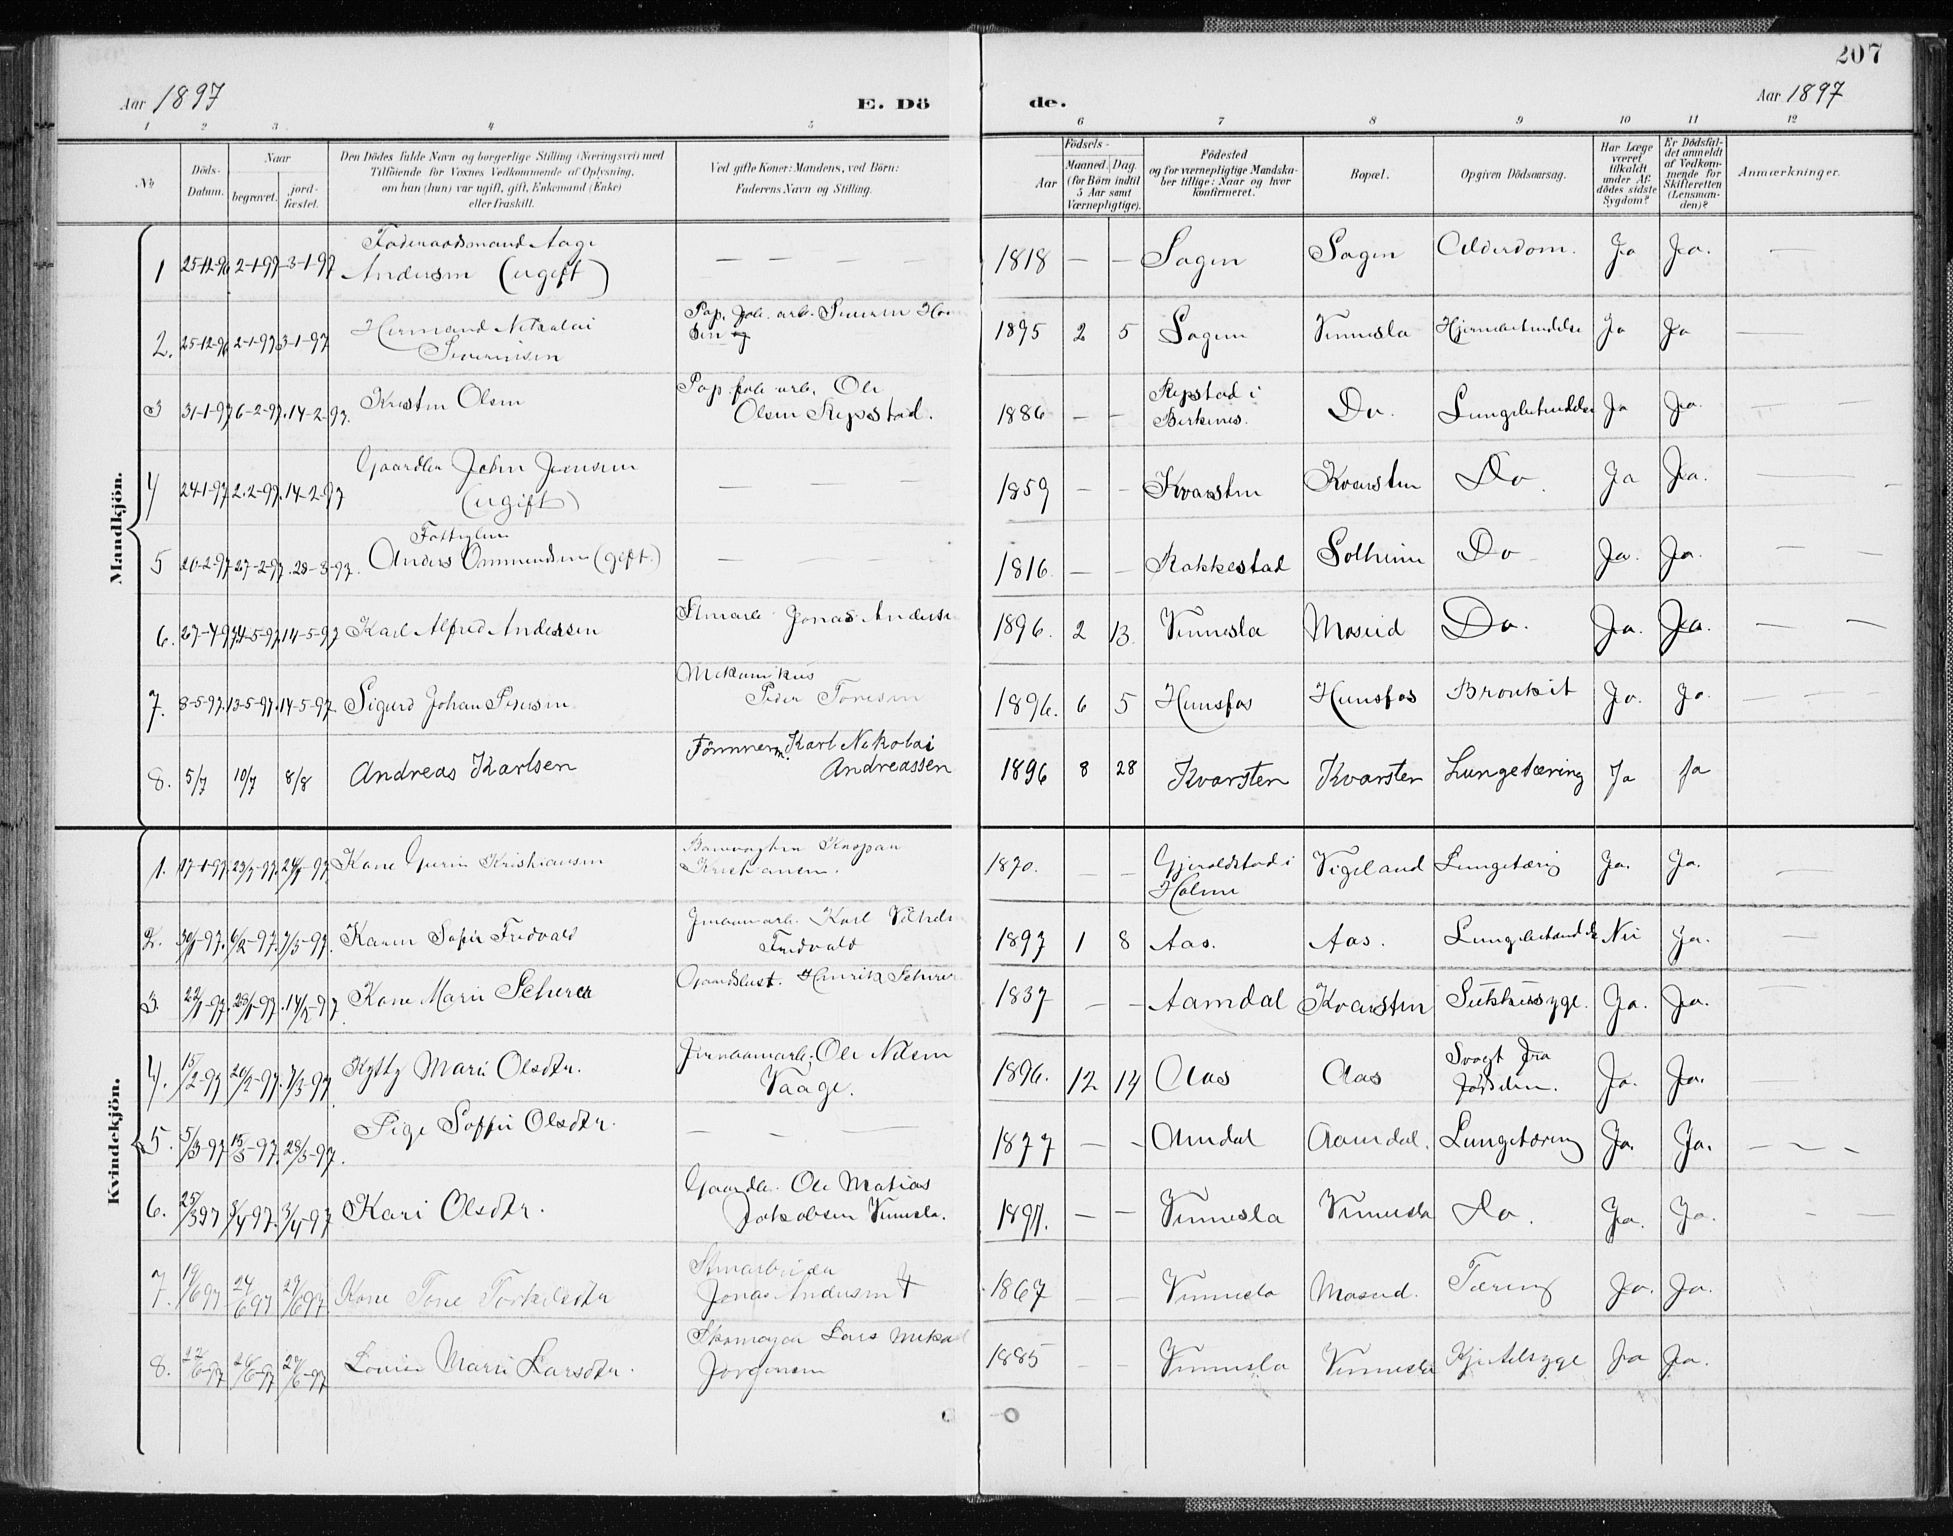 207
Aar 1897 E. Dö de. Aar 1897
1 2 3 4 5 6 7 8 9 10 11 12
№ Döds-Datum. Naar begravet. jord-fæstet. Den Dödes fulde Navn og borgerlige Stilling (Næringsvei) med Tilföiende for Voxnes Vedkommende af Oplysning, om han (hun) var ugift, gift, Enkemand (Enke) eller fraskilt. Ved gifte Koner: Mandens, ved Börn: Faderens Navn og Stilling. Födsels- Aar Maaned. Dag. (for Börn indtil 5 Aar samt Værnepligtige). Födested og for værnepligtige Mandskaber tillige: Naar og hvor konfirmeret. Bopæl. Opgiven Dödsaarsag. Har Læge været tilkaldt under Afdödes sidste Sygdom? Er Dödsfaldet anmeldt af Vedkommende for Skifteretten (Lensmanden)? Anmærkninger.
Mandkjön.
1 25-12-96 2-1-97 3-1-97 Föderaadsmand Aage Andersen (ugift) — — — — 1818 — — Sagen Sagen Alderdom. Ja Ja. —
2. 25-12-96 2-1-97 3-1-97 Hermand Nikolai Severinsen Pap. fab. arb. Severin 1895 2 5 Sagen Vennesla Hjernebetendelse Ja Ja —
3 31-1-97 6-2-97. 14-2-97. Kristen Olsen Pap. fab. arb. Ole Olsen Repstad. 1886 — — Repstad i Birkenes. Do. Lungebetendelse Ja Ja. —
4 24-1-97 2-2-97. 14-2-97 Gaardbr John Jensen (ugift) — — — 1859 — — Kvarsten Kvarsten Do. Ja Ja. —
5 20-2-97 27-2-97. 28-3-97. Fattiglem Anders Ommundsen (gift.) — — — 1816. — — Rakkestad Solheim Do Ja. Ja. — —
6. 27-4-97 14-5-97 14-5-97 Karl Alfred Andersen Stenarb. Jonas 1896. 2 13. Vennesla Moseid Do. Ja. Ja. — —
7. 8-5-97. 13-5-97. 14-5-97 Sigurd Johan Pedersen Mekanikus Peder Toresen 1896. 6 5 Hunsfos Hunsfos Bronkit Ja. Ja — — —
8. 5/7 10/7 8/8 Andreas Karlsen Tömmerm. Karl Nikolai Andreassen 1896 8 28 Kvarsten Kvarsten Lungetæring Ja Ja
Kvindekjön.
1. 17-1-97. Kone Gurine Kristiansen Kaspar Kristiansen. 1870. — — i Holme Vigeland Lungetæring Ja. Ja. —
2. 30/1-97. 6/2-97. 7/3-97. Karen Sofie Fredvald Karl Fredvald 1897 1 8 Aas. Aas. Lungebetændelse Nei Ja. —
3. 22/1-97. 14/2-97 Kone Marie Scherer Henrik Scherer 1837 — — Aamdal Kvarsten Sukkersyge. Ja. Ja. —
4. 15/2-97 20/2-97. 7/3-97 Kytty Marie Olsdtr. Jernbanearb. Ole Nilsen Vaage. 1896. 12 14 Aas Aas Svagt fra Födselen. Ja. Ja. —
5. 5/3-97 15/3-97. 28/3-97. Pige Soffie Olsdtr. — — — 1877 — — Amdal Aamdal. Lungetæring Ja. Ja. — — —
6. 25/3 97 3/4-97. 3/4-97 Kari Olsdtr. Gaardbr. Ole Matias Jakobsen Vennesla. — — Vennesla Vennesla Do. Ja. Ja. — —
7. 19/6 97 24/6 97 29/6 97 Kone Tone Torkelsdtr Stenarbeider Jonas Andersen 1867 — — Vennesla Moseid. Tæring Ja. Ja. —
8. Marie Larsdtr. Skomager Lars Mikael Jörgensen 1885 — — Vennesla Vennesla Kjertelsyge Ja Ja. —